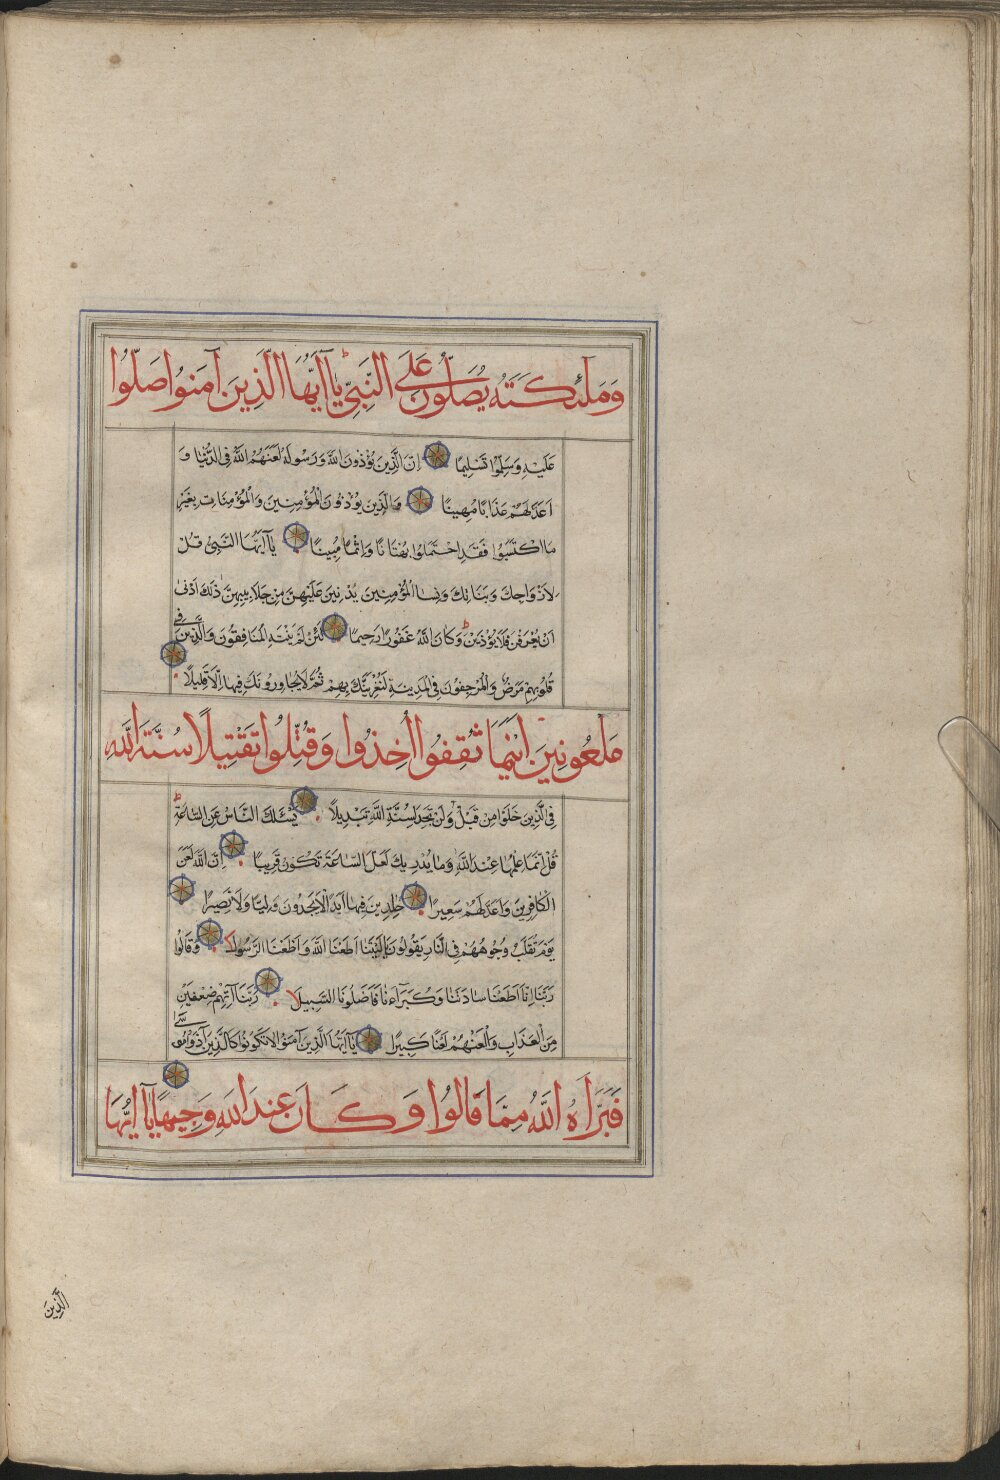 وَمَلٰئِكَتَهُ يُصَلُّونَ عَلَى النَّبِيِّ يَا اَيُّهَا الَّذِينَ آمَنُوا صَلُّوا
عَلَيْهِ وَسَلِّمُوا تَسْلِيمًا اِنَّ الَّذِينَ يُؤْذُونَ اللّٰهَ وَرَسُولَهُ لَعَنَهُمُ اللّٰهُ فِي الدُّنْيَا وَ
اَعَدَّ لَهُمْ عَذَابًا مُهِينًا وَالَّذِينَ يُؤْذُونَ الْمُؤْمِنِينَ وَالْمُؤْمِنَاتِ بِغَيْرِ
مَا اكْتَسَبُوا فَقَدِ احْتَمَلُوا بُهْتَانًا وَاِثْمًا مُبِينًا يَا اَيُّهَا النَّبِيُّ قُلْ
لِاَزْوَاجِكَ وَبَنَاتِكَ وَنِسَاءِ الْمُؤْمِنِينَ يُدْنِينَ عَلَيْهِنَّ مِنْ جَلَابِيبِهِنَّ ذٰلِكَ اَدْنٰى
اَنْ يُعْرَفْنَ فَلَا يُؤْذَيْنَ ط وَكَانَ اللّٰهُ غَفُورًا رَحِيمًا لَئِنْ لَمْ يَنْتَهِ الْمُنَافِقُونَ وَالَّذِينَ فِي
قُلُوبِهِمْ مَرَضٌ وَالْمُرْجِفُونَ فِي الْمَدِينَةِ لَنُغْرِيَنَّكَ بِهِمْ ثُمَّ لَا يُجَاوِرُونَكَ فِيهَا اِلَّا قَلِيلًا
مَلْعُونِينَ اَيْنَمَا ثُقِفُوا اُخِذُوا وَقُتِّلُوا تَقْتِيلًا سُنَّةَ اللّٰهِ
فِي الَّذِينَ خَلَوْا مِنْ قَبْلُ وَلَنْ تَجِدَ لِسُنَّةِ اللّٰهِ تَبْدِيلًا يَسْئَلُكَ النَّاسُ عَنِ السَّاعَةِ ط
قُلْ اِنَّمَا عِلْمُهَا عِنْدَ اللّٰهِ وَمَا يُدْرِيكَ لَعَلَّ السَّاعَةَ تَكُونُ قَرِيبًا اِنَّ اللّٰهَ لَعَنَ
الْكَافِرِينَ وَاَعَدَّ لَهُمْ سَعِيرًا خَالِدِينَ فِيهَا اَبَدًا لَا يَجِدُونَ وَلِيًّا وَلَا نَصِيرًا
يَوْمَ تُقَلَّبُ وُجُوهُهُمْ فِي النَّارِ يَقُولُونَ يَا لَيْتَنَا اَطَعْنَا اللّٰهَ وَاَطَعْنَا الرَّسُولَا وَقَالُوا
رَبَّنَا اِنَّا اَطَعْنَا سَادَتَنَا وَكُبَرَاءَنَا فَاَضَلُّونَا السَّبِيلَا رَبَّنَا آتِهِمْ ضِعْفَيْنِ
مِنَ الْعَذَابِ وَالْعَنْهُمْ لَعْنًا كَبِيرًا يَا اَيُّهَا الَّذِينَ آمَنُوا لَا تَكُونُوا كَالَّذِينَ آذَوْا مُوسٰى
فَبَرَّاَهُ اللّٰهُ مِمَّا قَالُوا وَكَانَ عِنْدَ اللّٰهِ وَجِيهًا يَا اَيُّهَا
الَّذِينَ